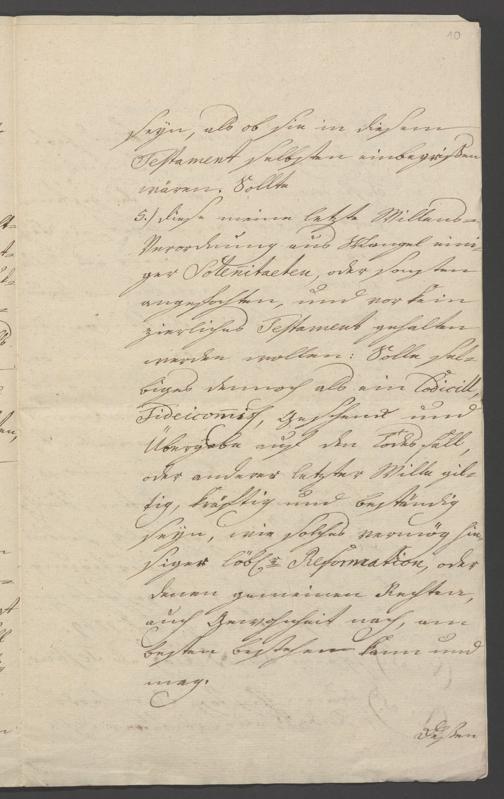 10
seyn, als ob sie in diesem
Testament selbsten einbegriffen
wären. Sollte
5.) diese meine letzte Willens-
Verordnung aus Mangel eini-
ger Solenitaeten, oder sonsten
angefochten, und vor kein
zierliches Testament gehalten
werden wollen: Solle sel-
biges dennoch als ein Codicill,
Fideicomiss, Geschenk und
Übergabe auf den Todesfall,
oder anderer letzter Wille gül-
tig, kräftig und beständig
seyn, wie solches vermög hie-
siger löbl. Reformation, oder
denen gemeinen Rechten,
auch Gewohnheit nach, am
besten bestehen kann und
mag.
Dessen